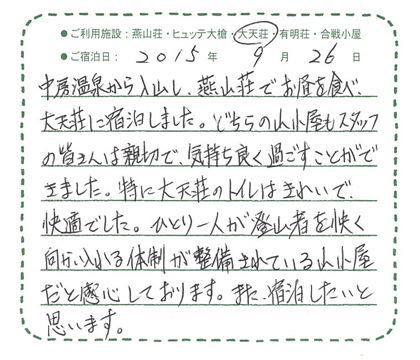 ●ご利用施設：燕山荘・ヒュッテ大槍・大天荘・有明荘・合戦小屋
●ご宿泊日：2015年 9月 26日
中房温泉から入山し、燕山荘でお昼を食べ、
大天荘に宿泊しました。どちらの山小屋もスタッフ
の皆さんは親切で、気持ち良く過ごすことがで
きました。特に大天荘のトイレはきれいで、
快適でした。ひとり一人が登山者を快く
向かい入れる体制が整備されている山小屋
だと感心しております。また、宿泊したいと
思います。